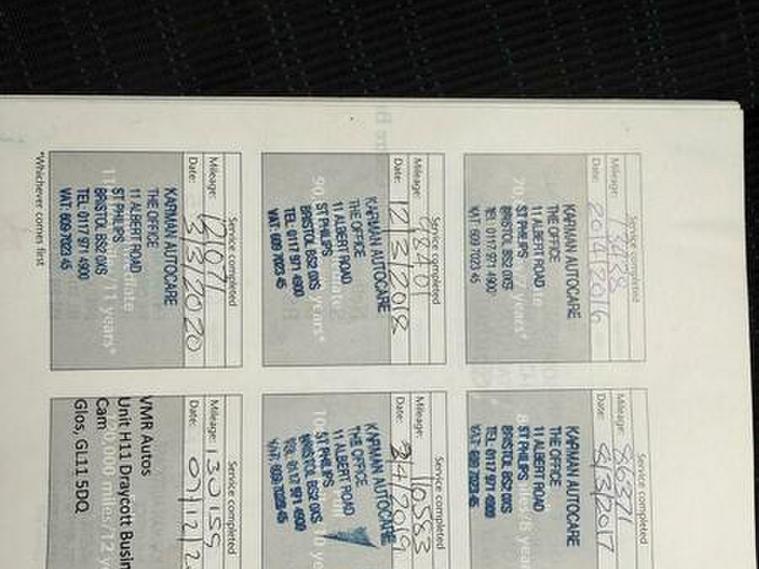 Service completed
Mileage:
Date: 20/4/2016
KARMAN AUTOCARE
THE OFFICE
11 ALBERT ROAD
ST PHILIPS
BRISTOL BS2 0XS
TEL: 0117 971 4900
VAT: 609 7023 45
Service completed
Mileage: 86371
Date: 8/3/2017
KARMAN AUTOCARE
THE OFFICE
11 ALBERT ROAD
ST PHILIPS
BRISTOL BS2 0XS
TEL: 0117 971 4900
VAT: 609 7023 45
Service completed
Mileage: 98401
Date: 12/3/2018
KARMAN AUTOCARE
THE OFFICE
11 ALBERT ROAD
ST PHILIPS
BRISTOL BS2 0XS
TEL: 0117 971 4900
VAT: 609 7023 45
Service completed
Mileage: 110583
Date: /4/2019
KARMAN AUTOCARE
THE OFFICE
11 ALBERT ROAD
ST PHILIPS
BRISTOL BS2 0XS
TEL: 0117 971 4900
VAT: 609 7023 45
Service completed
Mileage: 121071
Date: 3/3/2020
KARMAN AUTOCARE
THE OFFICE
11 ALBERT ROAD
ST PHILIPS
BRISTOL BS2 0XS
TEL: 0117 971 4900
VAT: 609 7023 45
/11 years*
Service completed
Mileage: 130159
Date: 07/12/2
VMR Autos
Unit H11 Draycott Busin
Cam
0,000 miles/12 y
Glos, GL11 5DQ
*Whichever comes first